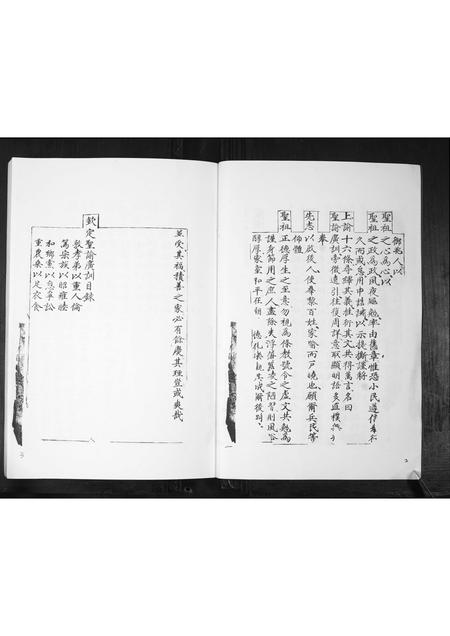 御兆人以
聖祖之心為心以
聖祖之政為政夙夜黽勉率由舊章惟恐小民遵信奉行
久而或怠用申誥誡以示提撕謹將
上諭十六條尋繹其義推衍其文共得萬言名曰
聖諭廣訓旁徵遠引往復周詳意取顯明語多直樸無
奉
先志以啟後人使羣黎百姓家喻而戶曉也願爾兵民等
仰體
聖祖正德厚生之至意勿視為條教號令之虛文共勉為
謹身節用之庶人盡除夫浮薄囂凌之陋習則風俗
醇厚家室和平在朝
爾後
2
並受其福積善之家必有餘慶其理豈或爽哉
欽定聖諭廣訓目錄
敦孝弟以重人倫
篤宗族以昭雍睦
和鄉黨以息爭訟
重農桑以足衣食
3